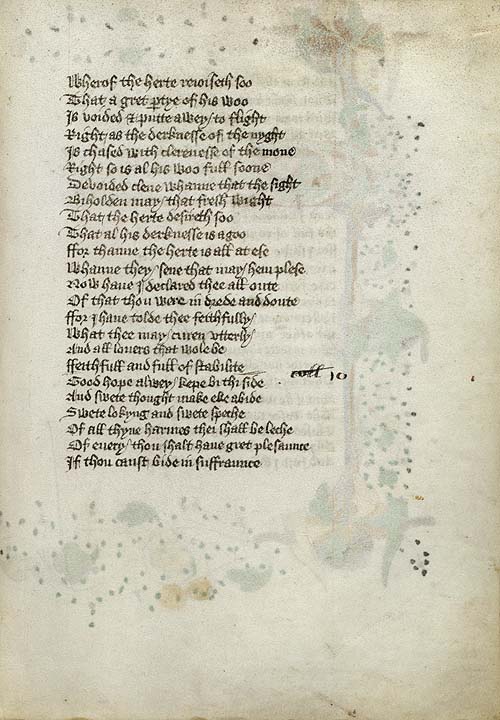 Wherof the herte reioiseth soo
That a gret ptye of his woo
Is voided & putte awey / to flight
Right as the derknesse of the nyght
Is chased with clerenesse of the mone
Right so is al his woo full soone
Devoided clene whanne that the sight
Biholden may / that fresh wight
That the herte desireth soo
That al his derknesse is agoo
ffor thanne the herte is all at ese
Whanne they / sene that may / hem plese
Now haue I declared thee all oute
Of that thou were in drede and doute
ffor I haue tolde thee feithfully /
What thee may / curen vtterly /
And all louers that wole be
ffeithfull and full of stabilite
Good hope alwey / kepe bi thi side
And swete thought make eke abide
Swete lokyng and swete speche
Of all thyne harmes thei shall be leche
Of euery / thou shalt haue gret plesaunce
If thou canst bide in suffraunce
10